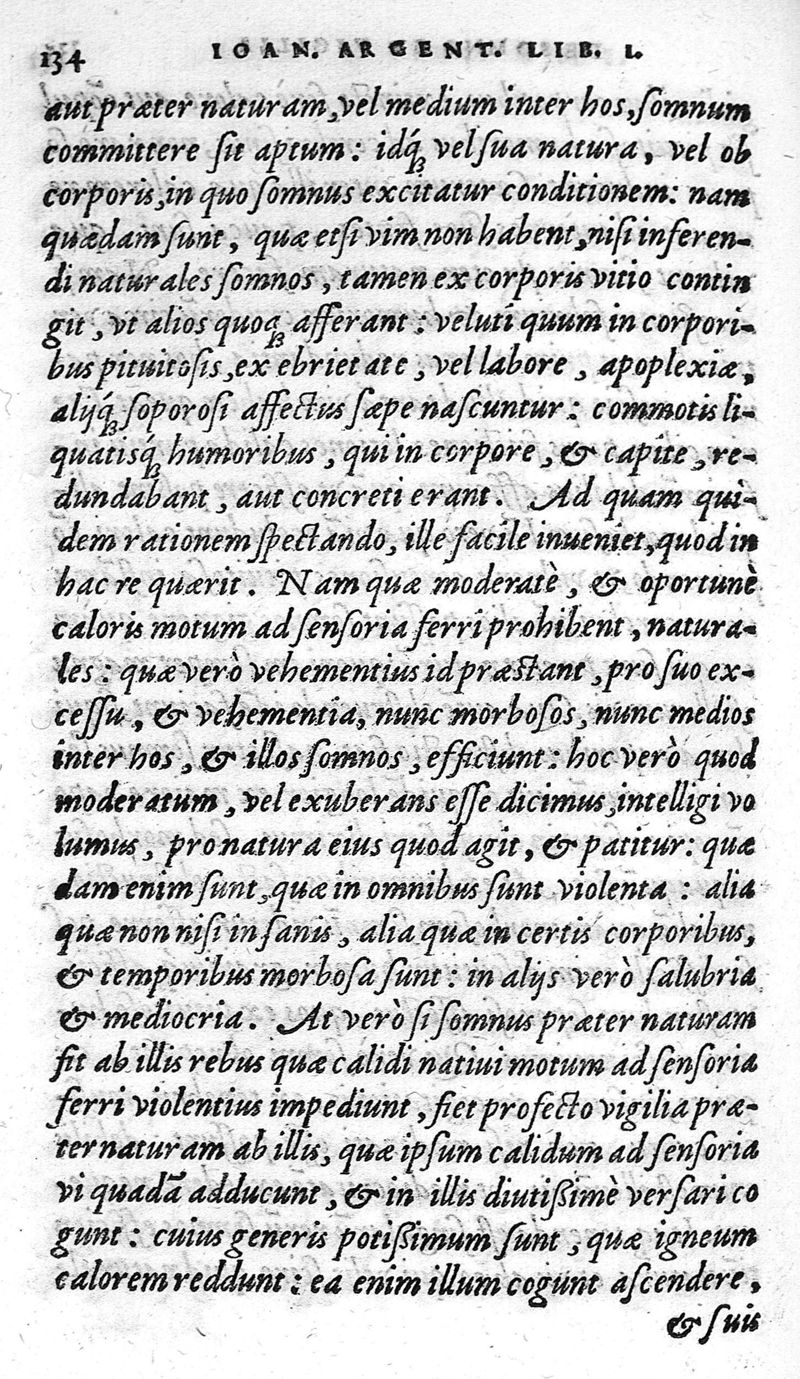 134 IOAN. ARGENT. LIB. I.
aut præter naturam, vel medium inter hos, somnum
committere sit aptum: idq́ꝫ vel sua natura, vel ob
corporis, in quo somnus excitatur conditionem: nam
quædam sunt, quæ etsi vim non habent, nisi inferen-
di naturales somnos, tamen ex corporis vitio contin
git, vt alios quoqꝫ afferant: veluti quum in corpori-
bus pituitosis, ex ebrietate, vel labore, apoplexiæ,
alijq́ꝫ soporosi affectus sæpe nascuntur: commotis li-
quatisq́ꝫ humoribus, qui in corpore, & capite, re-
dundabant, aut concreti erant. Ad quam qui-
dem rationem spectando, ille facile inueniet, quod in
hac re quærit. Nam quæ moderatè, & oportunè
caloris motum ad sensoria ferri prohibent, natura-
les: quæ verò vehementius id præstant, pro suo ex-
cessu, & vehementia, nunc morbosos, nunc medios
inter hos, & illos somnos, efficiunt: hoc verò quod
moderatum, vel exuberans esse dicimus, intelligi vo
lumus, pro natura eius quod agit, & patitur: quæ
dam enim sunt, quæ in omnibus sunt violenta: alia
quæ non nisi in sanis, alia quæ in certis corporibus,
& temporibus morbosa sunt: in alijs verò salubria
& mediocria. At verò si somnus præter naturam
fit ab illis rebus quæ calidi natiui motum ad sensoria
ferri violentius impediunt, fiet profecto vigilia præ-
ter naturam ab illis, quæ ipsum calidum ad sensoria
vi quadā adducunt, & in illis diutißimè versari co
gunt: cuius generis potißimum sunt, quæ igneum
calorem reddunt: ea enim illum cogunt ascendere,
& suis